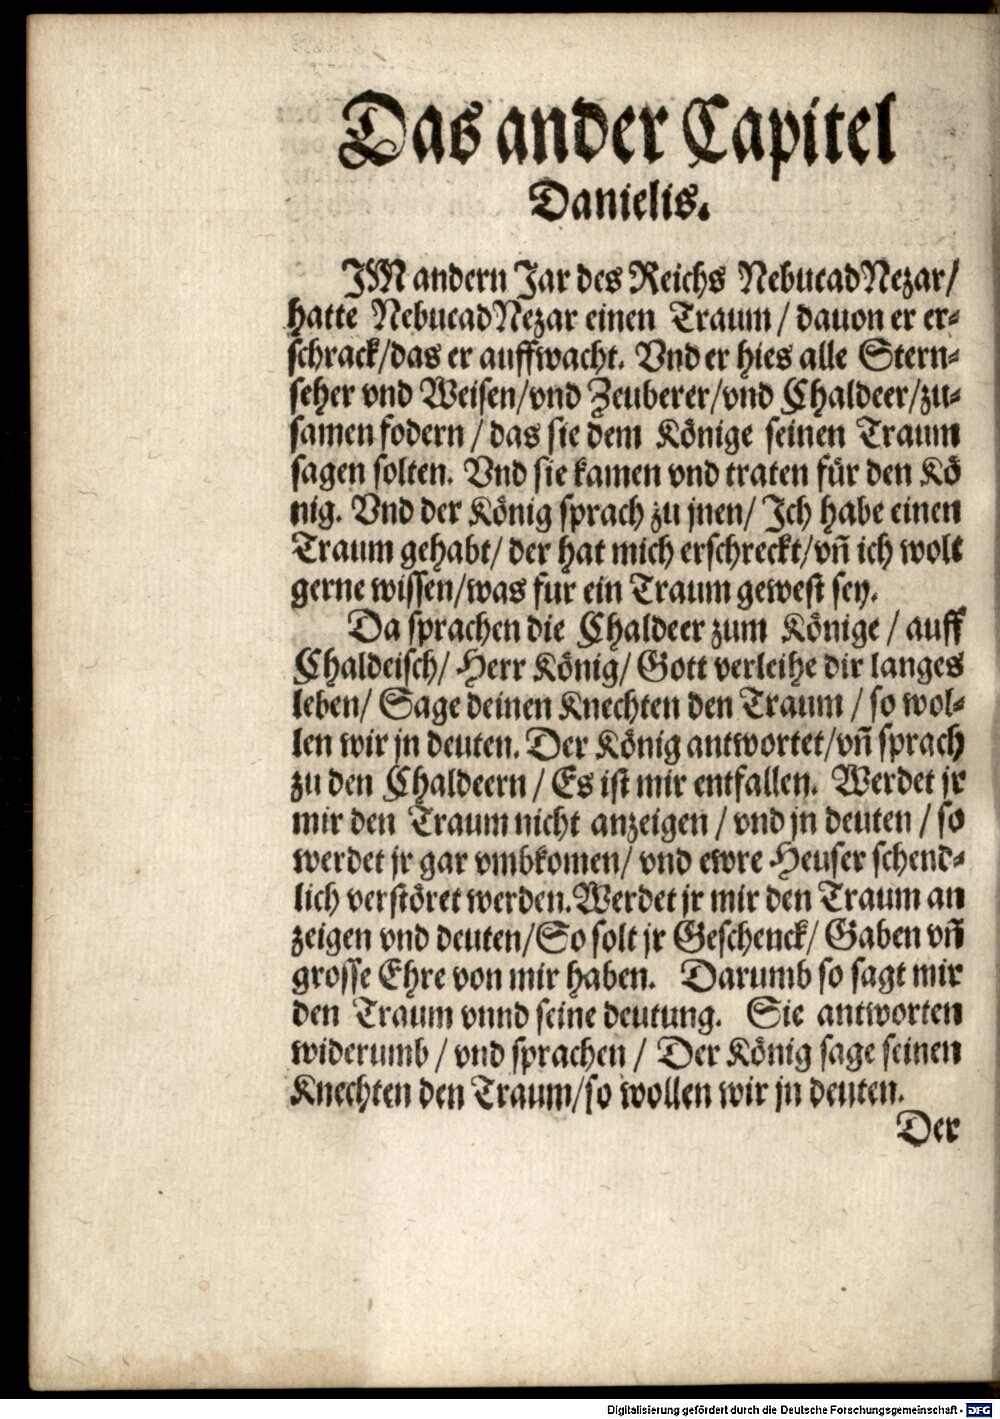 Das ander Capitel
Danielis.
JM andern Jar des Reichs NebucadNezar/
hatte NebucadNezar einen Traum / dauon er er-
schrack/das er auffwacht. Vnd er hies alle Stern-
seher vnd Weisen/vnd Zeuberer/vnd Chaldeer/zu-
samen fodern / das sie dem Könige seinen Traum
sagen solten. Vnd sie kamen vnd traten für den Kö
nig. Vnd der König sprach zu jnen/ Jch habe einen
Traum gehabt/ der hat mich erschreckt/vñ ich wolt
gerne wissen/was fur ein Traum gewest sey.
Da sprachen die Chaldeer zum Könige / auff
Chaldeisch/ Herr König/ Gott verleihe dir langes
leben/ Sage deinen Knechten den Traum / so wol-
len wir jn deuten. Der König antwortet/vñ sprach
zu den Chaldeern / Es ist mir entfallen. Werdet jr
mir den Traum nicht anzeigen / vnd jn deuten / so
werdet jr gar vmbkomen/ vnd ewre Heuser schend-
lich verstöret werden. Werdet jr mir den Traum an
zeigen vnd deuten/So solt jr Geschenck/ Gaben vñ
grosse Ehre von mir haben. Darumb so sagt mir
den Traum vnnd seine deutung. Sie antworten
widerumb / vnd sprachen / Der König sage seinen
Knechten den Traum/so wollen wir jn deuten.
Der
Digitalisierung gefördert durch die Deutsche Forschungsgemeinschaft - DFG